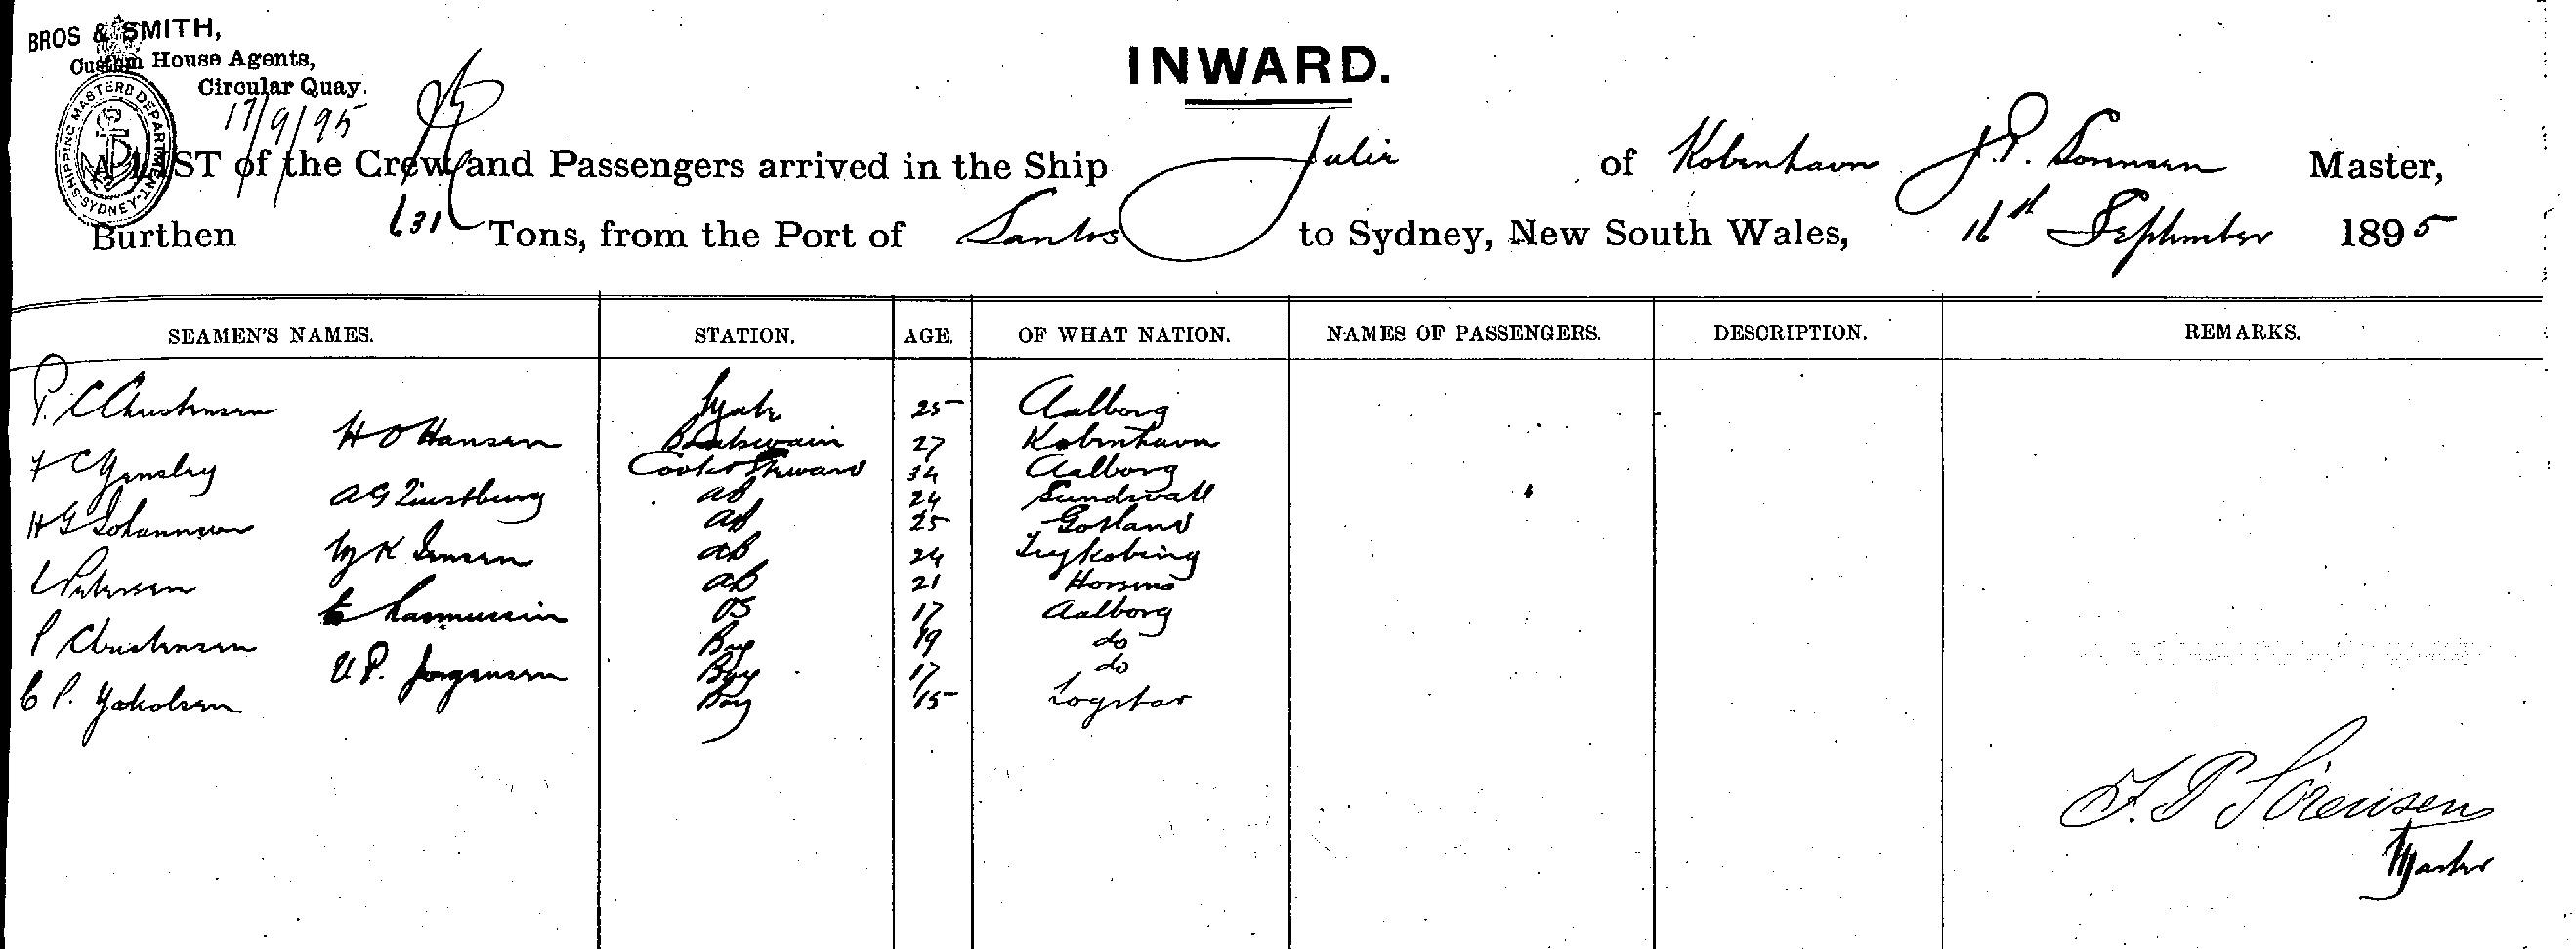 BROS & SMITH,
Custom House Agents,
Circular Quay.
17/9/95
SHIPPING MASTERS DEPARTMENT SYDNEY
INWARD.
A LIST of the Crew and Passengers arrived in the Ship Julie of Kobenhavn J. P. Sorensen Master,
Burthen 631 Tons, from the Port of Santos to Sydney, New South Wales, 16st September 1895
SEAMEN'S NAMES. STATION. AGE. OF WHAT NATION. NAMES OF PASSENGERS. DESCRIPTION. REMARKS.
P. C Christensen Mate 25 Aalborg
H O Hansen Boatswain 27 Kobenhavn
C Cook & Steward 34 Aalborg
A G ab 24 Sundsvall
H G Johannsen ab 25 Gotland
K Jensen ab 24 Nykobing
Petersen ab 21 Horsens
Rasmussen OS 17 Aalborg
P Christensen Boy 19 do
V. P. Jorgensen Boy 17 do
C P. Yakobsen Boy 15 Logstor
J. P Sörensen
Master